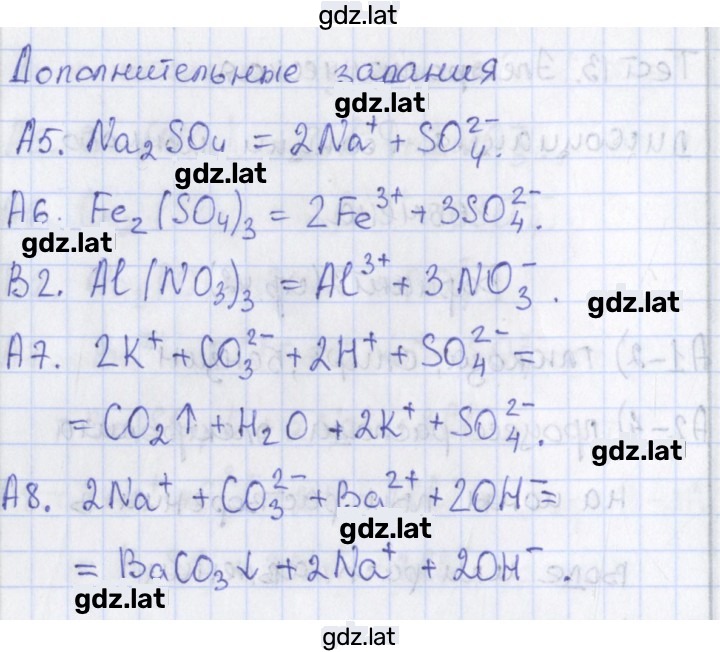 gdz.lat
Дополнительные задания
gdz.lat
А5. Na₂SO₄ = 2Na⁺ + SO₄²⁻.
gdz.lat
А6. Fe₂(SO₄)₃ = 2Fe³⁺ + 3SO₄²⁻.
gdz.lat
В2. Al(NO₃)₃ = Al³⁺ + 3NO₃⁻.
gdz.lat
А7. 2K⁺ + CO₃²⁻ + 2H⁺ + SO₄²⁻ =
= CO₂↑ + H₂O + 2K⁺ + SO₄²⁻.
gdz.lat
А8. 2Na⁺ + CO₃²⁻ + Ba²⁺ + 2OH⁻ =
gdz.lat
= BaCO₃↓ + 2Na⁺ + 2OH⁻.
gdz.lat
gdz.lat